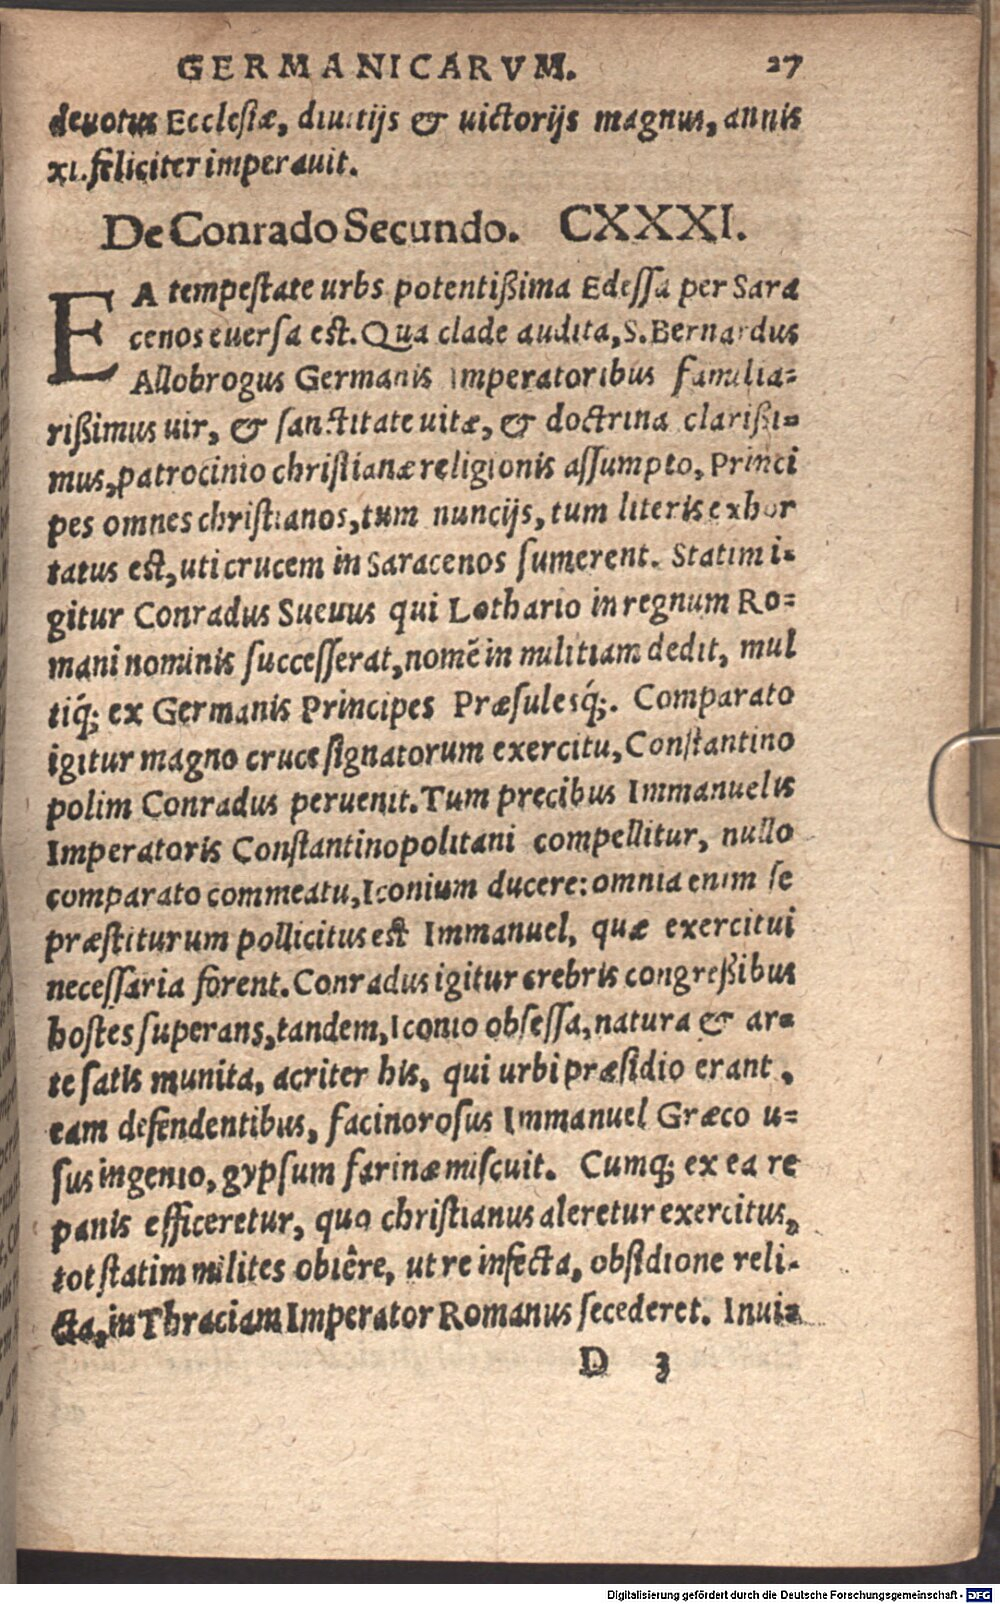 GERMANICARVM. 27
deuotus Ecclesiæ, diuitijs & uictorijs magnus, annis
xi. feliciter imperauit.
De Conrado Secundo. CXXXI.
EA tempestate urbs potentißima Edessa per Sara
cenos euersa est. Qua clade audita, S. Bernardus
Allobrogus Germanis Imperatoribus familia=
rißimus uir, & sanctitate uitæ, & doctrina clarißi=
mus, patrocinio christianæ religionis assumpto, Princi
pes omnes christianos, tum nuncijs, tum literis exhor
tatus est, uti crucem in Saracenos sumerent. Statim i=
gitur Conradus Sueuus qui Lothario in regnum Ro=
mani nominis successerat, nomẽ in militiam dedit, mul
tiq́; ex Germanis Principes Præsulesq́;. Comparato
igitur magno cruce signatorum exercitu, Constantino
polim Conradus peruenit. Tum precibus Immanuelis
Imperatoris Constantinopolitani compellitur, nullo
comparato commeatu, Iconium ducere: omnia enim se
præstiturum pollicitus est Immanuel, quæ exercitui
necessaria forent. Conradus igitur crebris congreßibus
hostes superans, tandem, Iconio obsessa, natura & ar=
te satis munita, acriter his, qui urbi præsidio erant,
eam defendentibus, facinorosus Immanuel Græco u=
sus ingenio, gypsum farinæ miscuit. Cumq; ex ea re
panis efficeretur, quo christianus aleretur exercitus,
tot statim milites obiêre, ut re infecta, obsidione reli-
cta, in Thraciam Imperator Romanus secederet. Inui=
D 3
Digitalisierung gefördert durch die Deutsche Forschungsgemeinschaft - DFG